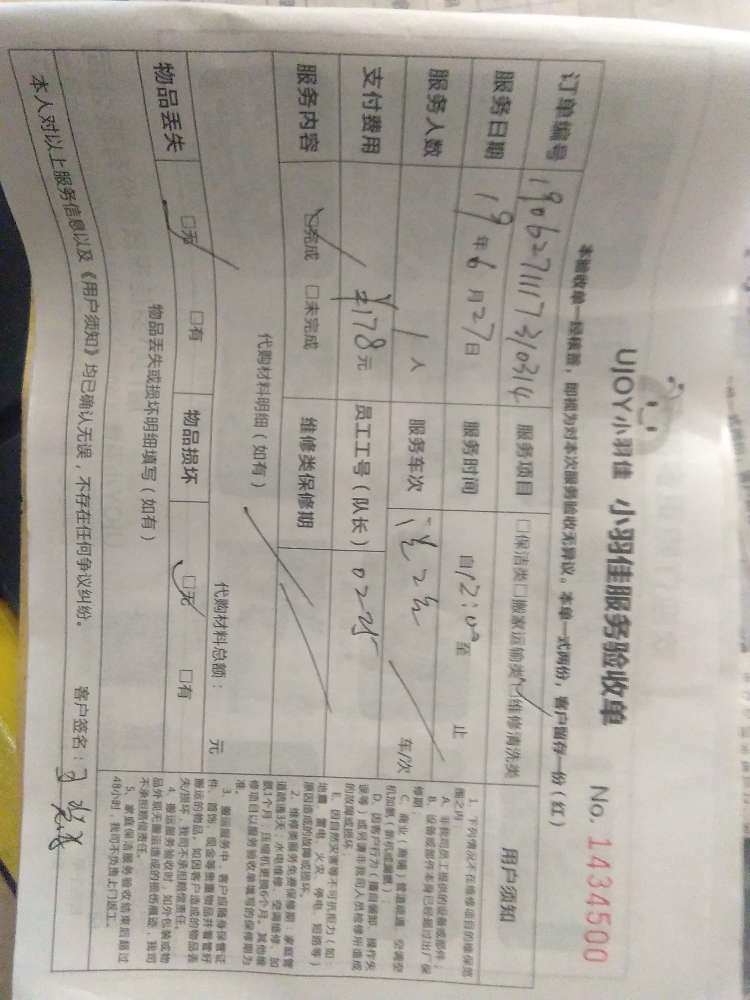 UJOY小羽佳 小羽佳服务验收单 No. 1434500
本验收单一经核签，即视为对本次服务验收无异议。本单一式两份，客户留存一份（红）
订单编号 1906271117310314 服务项目 □保洁类□搬家运输类□维修清洗类
服务日期 19年6月27日 服务时间 自12:00至 止
服务人数 1人 服务车次 车/次
支付费用 ¥178元 员工工号（队长） 0225
服务内容 □完成 □未完成 维修类保修期
代购材料明细（如有）
代购材料总额： 元
物品丢失 □无 □有 物品损坏 □无 □有
物品丢失或损坏明细填写（如有）
本人对以上服务信息以及《用户须知》均已确认无误，不存在任何争议纠纷。 客户签名：
用户须知
1. 下列情况不在维修项目的维保范
围之内：
A. 非我司员工提供的设备或部件；
B. 设备或部件本身已经超过出厂保
修期；
C. 商业（商铺）管道疏通、空调空
机加氟（新机或漏氟）；
D. 因客户行为（擅自装卸、操作失
误等）或另请非我司人员检修所造成
的故障或损坏；
E. 因自然灾害等不可抗拒力（如：
地震、雷电、火灾、停电、短路等）
原因造成的故障或损坏。
2. 维修类服务免费保修期：家庭管
道疏通3天；水电维修、空调维修、加
氟1个月；压缩机更换6个月。其他维
修项目以服务验收单填写的保修期为
准。
3. 搬运服务中，客户应随身保管证
件、首饰、现金等贵重物品并看管好
搬运的物品，如因客户造成的物品丢
失/损坏，我司不承担赔偿责任。
4. 搬运服务验收时，如外包装或物
品外观无搬运造成的损伤痕迹，我司
不承担赔偿责任。
5. 家庭保洁服务验收结束后超过
48小时，我司不负责上门返工。